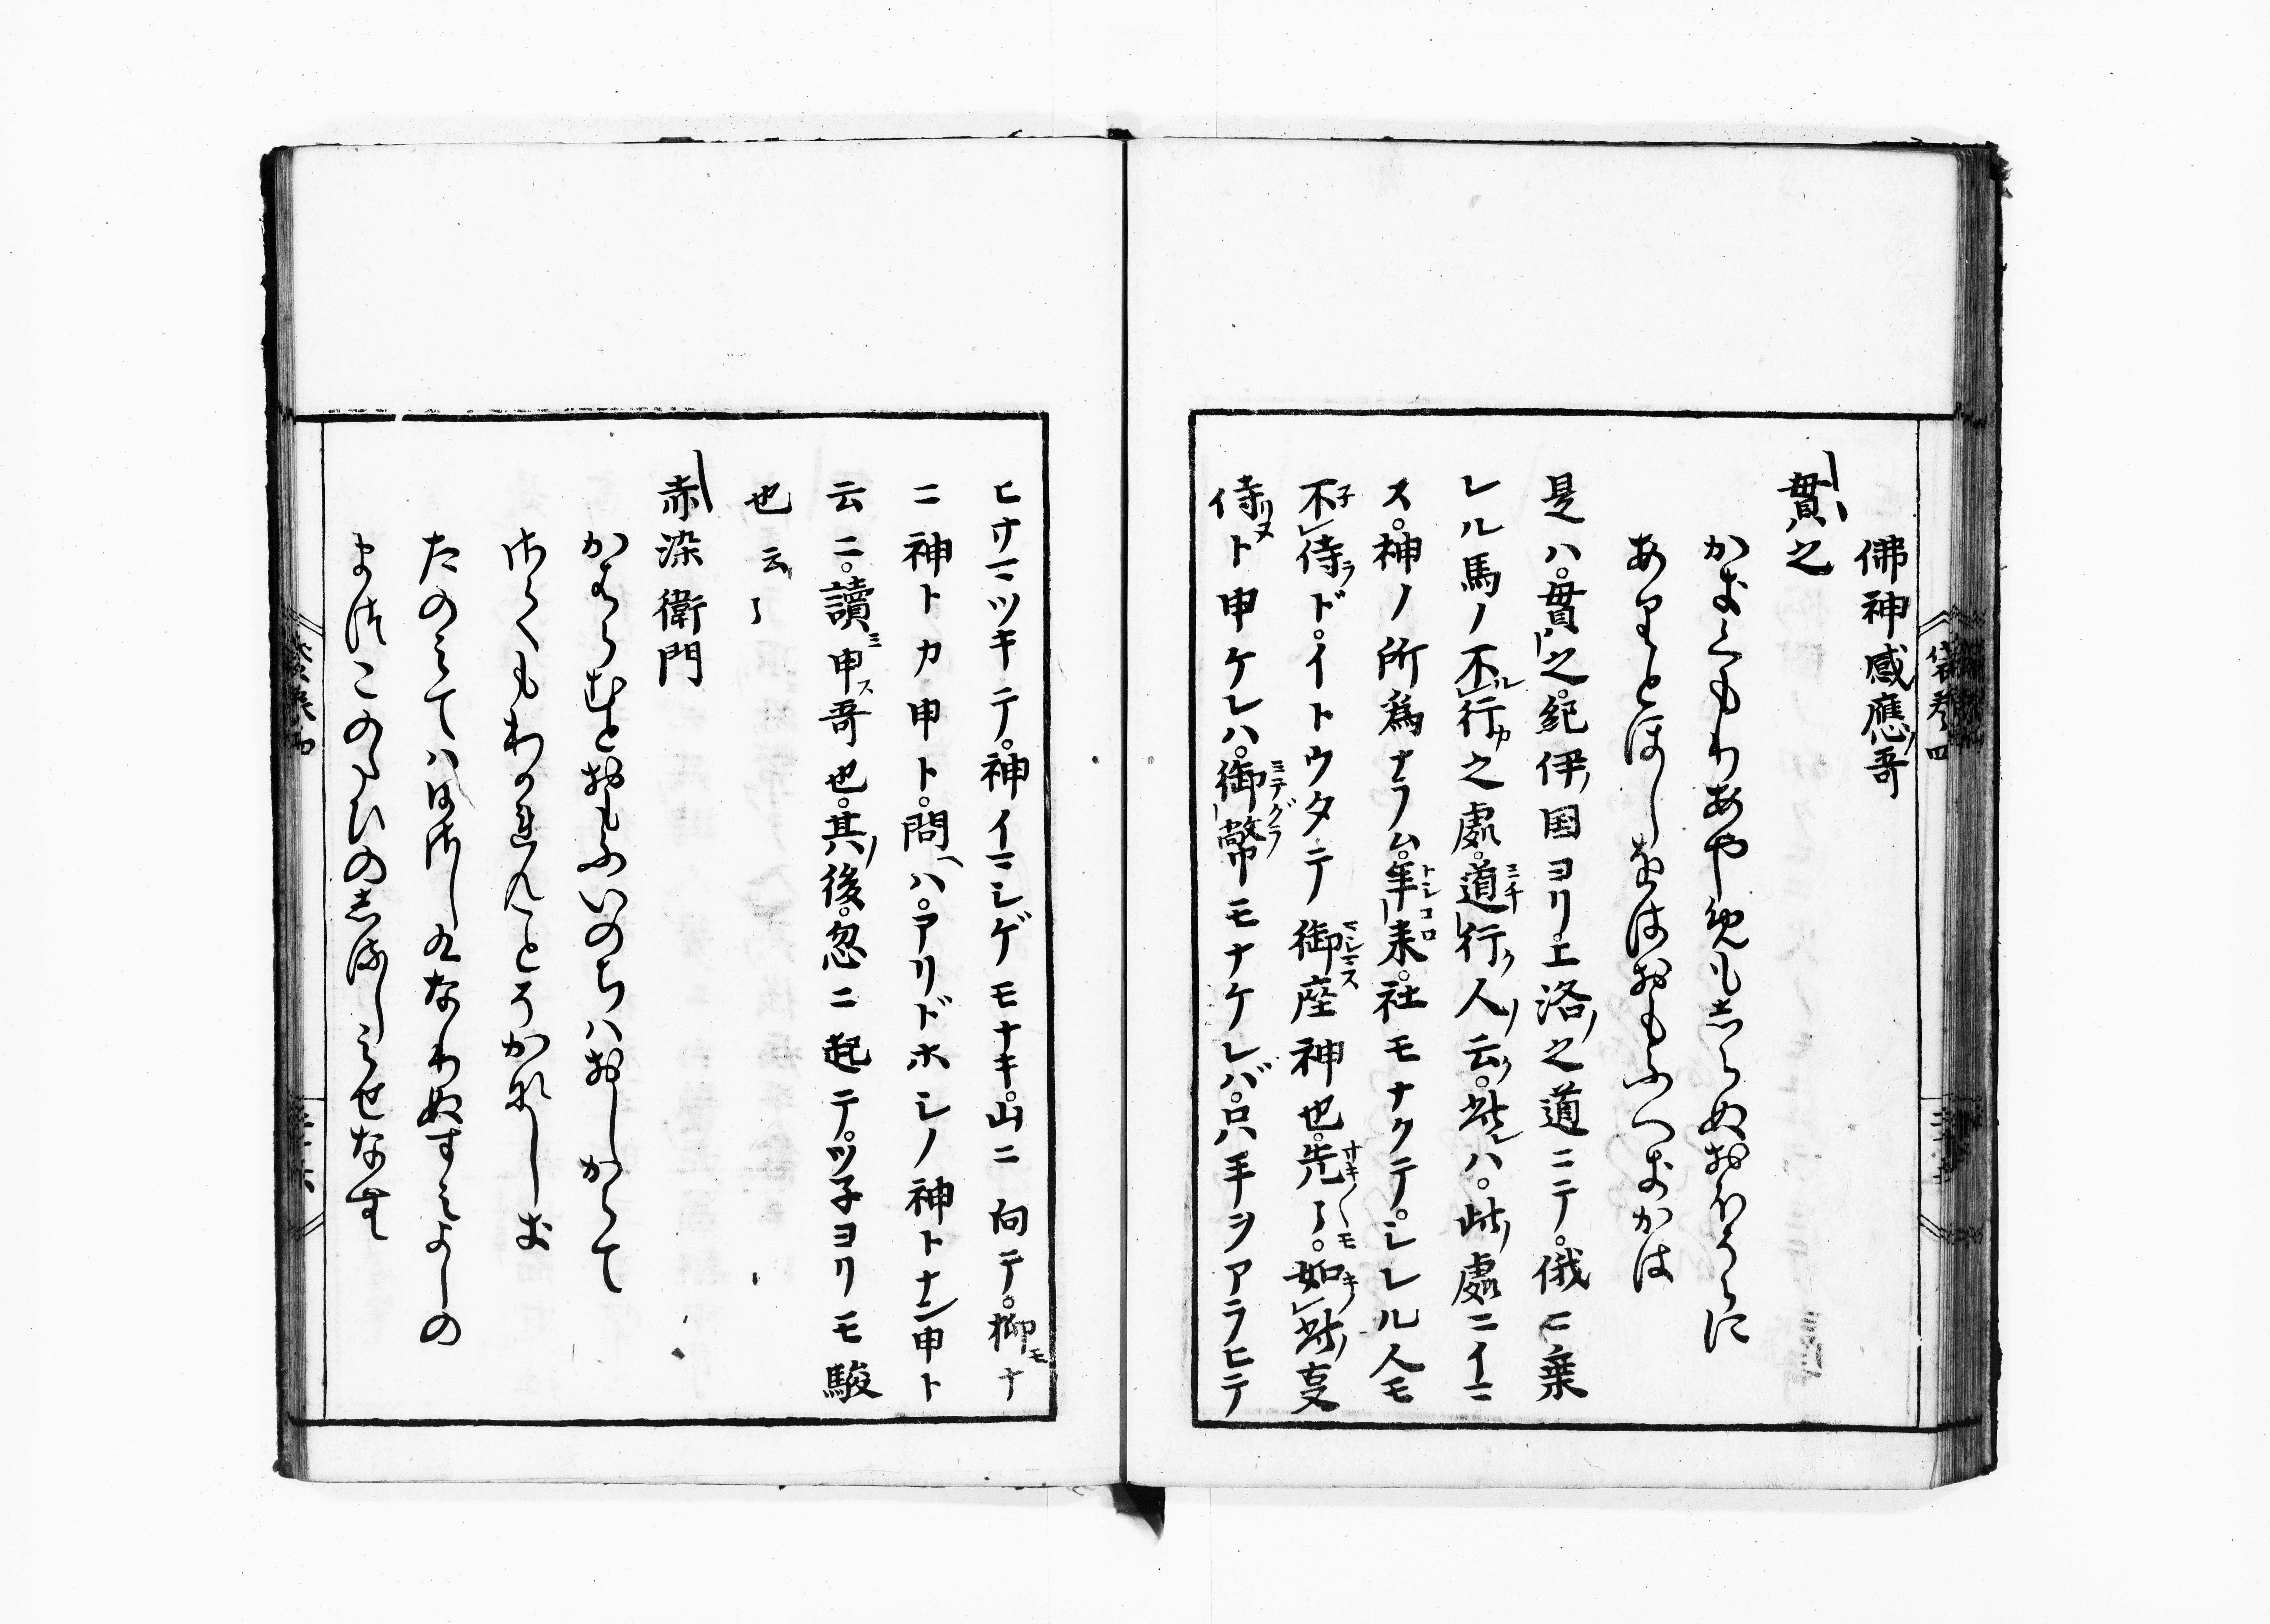 佛神感應ノ哥
貫之
かきくもりあやめもしらぬおほそらに
ありとほしをはおもふへきかは
是ハ。貫之。紀伊ノ国ヨリ。上洛ノ之道ニテ。俄ニ乗
レル馬ノ不ル行カ之處。道行ク人ノ云ク。此レハ。此ノ處ニイマ
ス。神ノ所為ナラム。年来。社モナクテ。シレル人モ
不子侍ラド。イトウタテ御座神也。先々。如キ此ノ支
侍リヌト申ケレハ。御幣モナケレバ。只手ヲアラヒテ
ヒサマツキテ。神イマシゲモナキ。山ニ向テ。抑モナ
ニ神トカ申ト。問ヘハ。アリドホシノ神トナン申ト
云ニ。讀ミ申ス哥也。其ノ後。忽ニ起テ。ツ子ヨリモ駿
也云々
赤染衛門
かはらむとおもふいのちはおしからて
さてもわかれんことそかなしき
たのみてはひさしくなりぬすみよしの
まつこのたひのしるしみせなむ
袋巻四